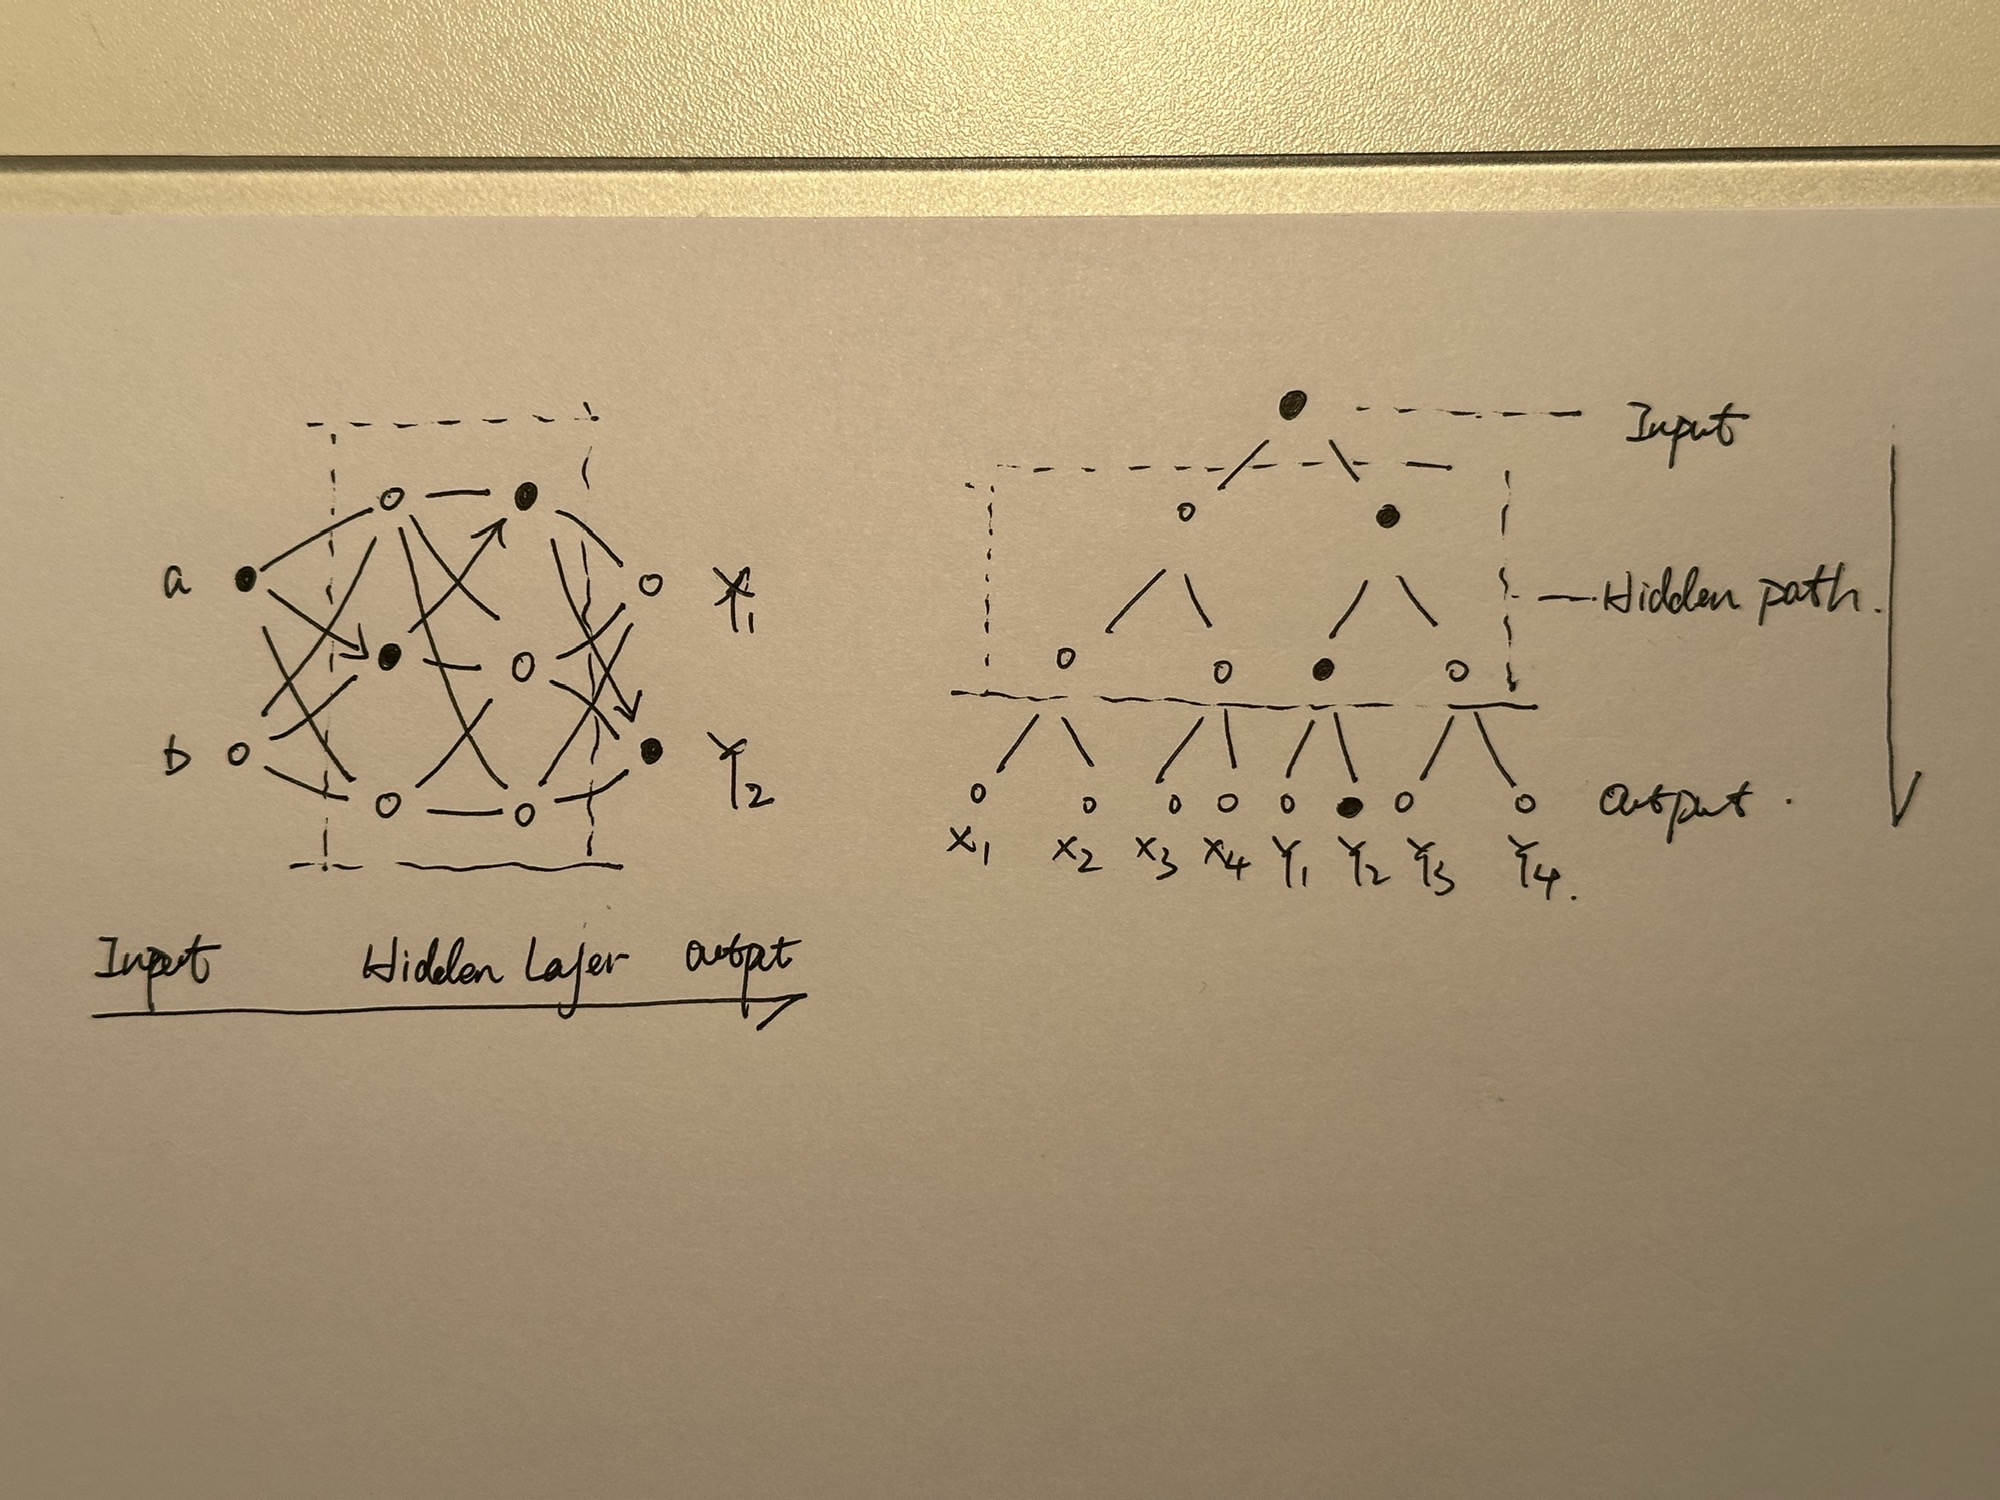 a
Y₁
b
Y₂
Input Hidden Layer output
Input
Hidden path.
output.
X₁ X₂ X₃ X₄ Y₁ Y₂ Y₃ Y₄.